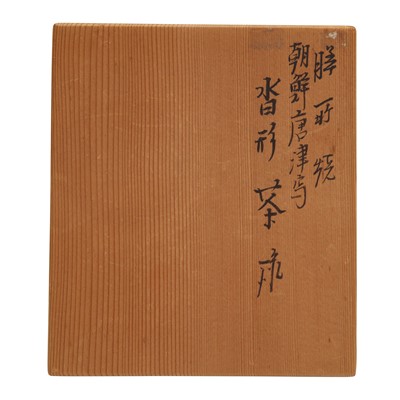 膳所焼
朝鮮唐津写
沓形茶碗